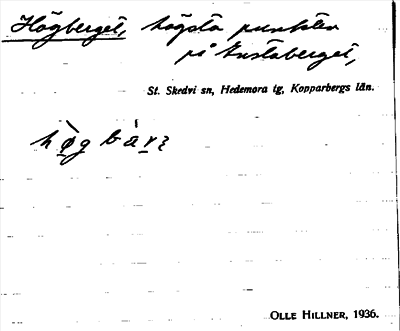 Högberget, högsta punkten
på Gustaberget,
St. Skedvi sn, Hedemora tg, Kopparbergs län.
OLLE HILLNER, 1936.